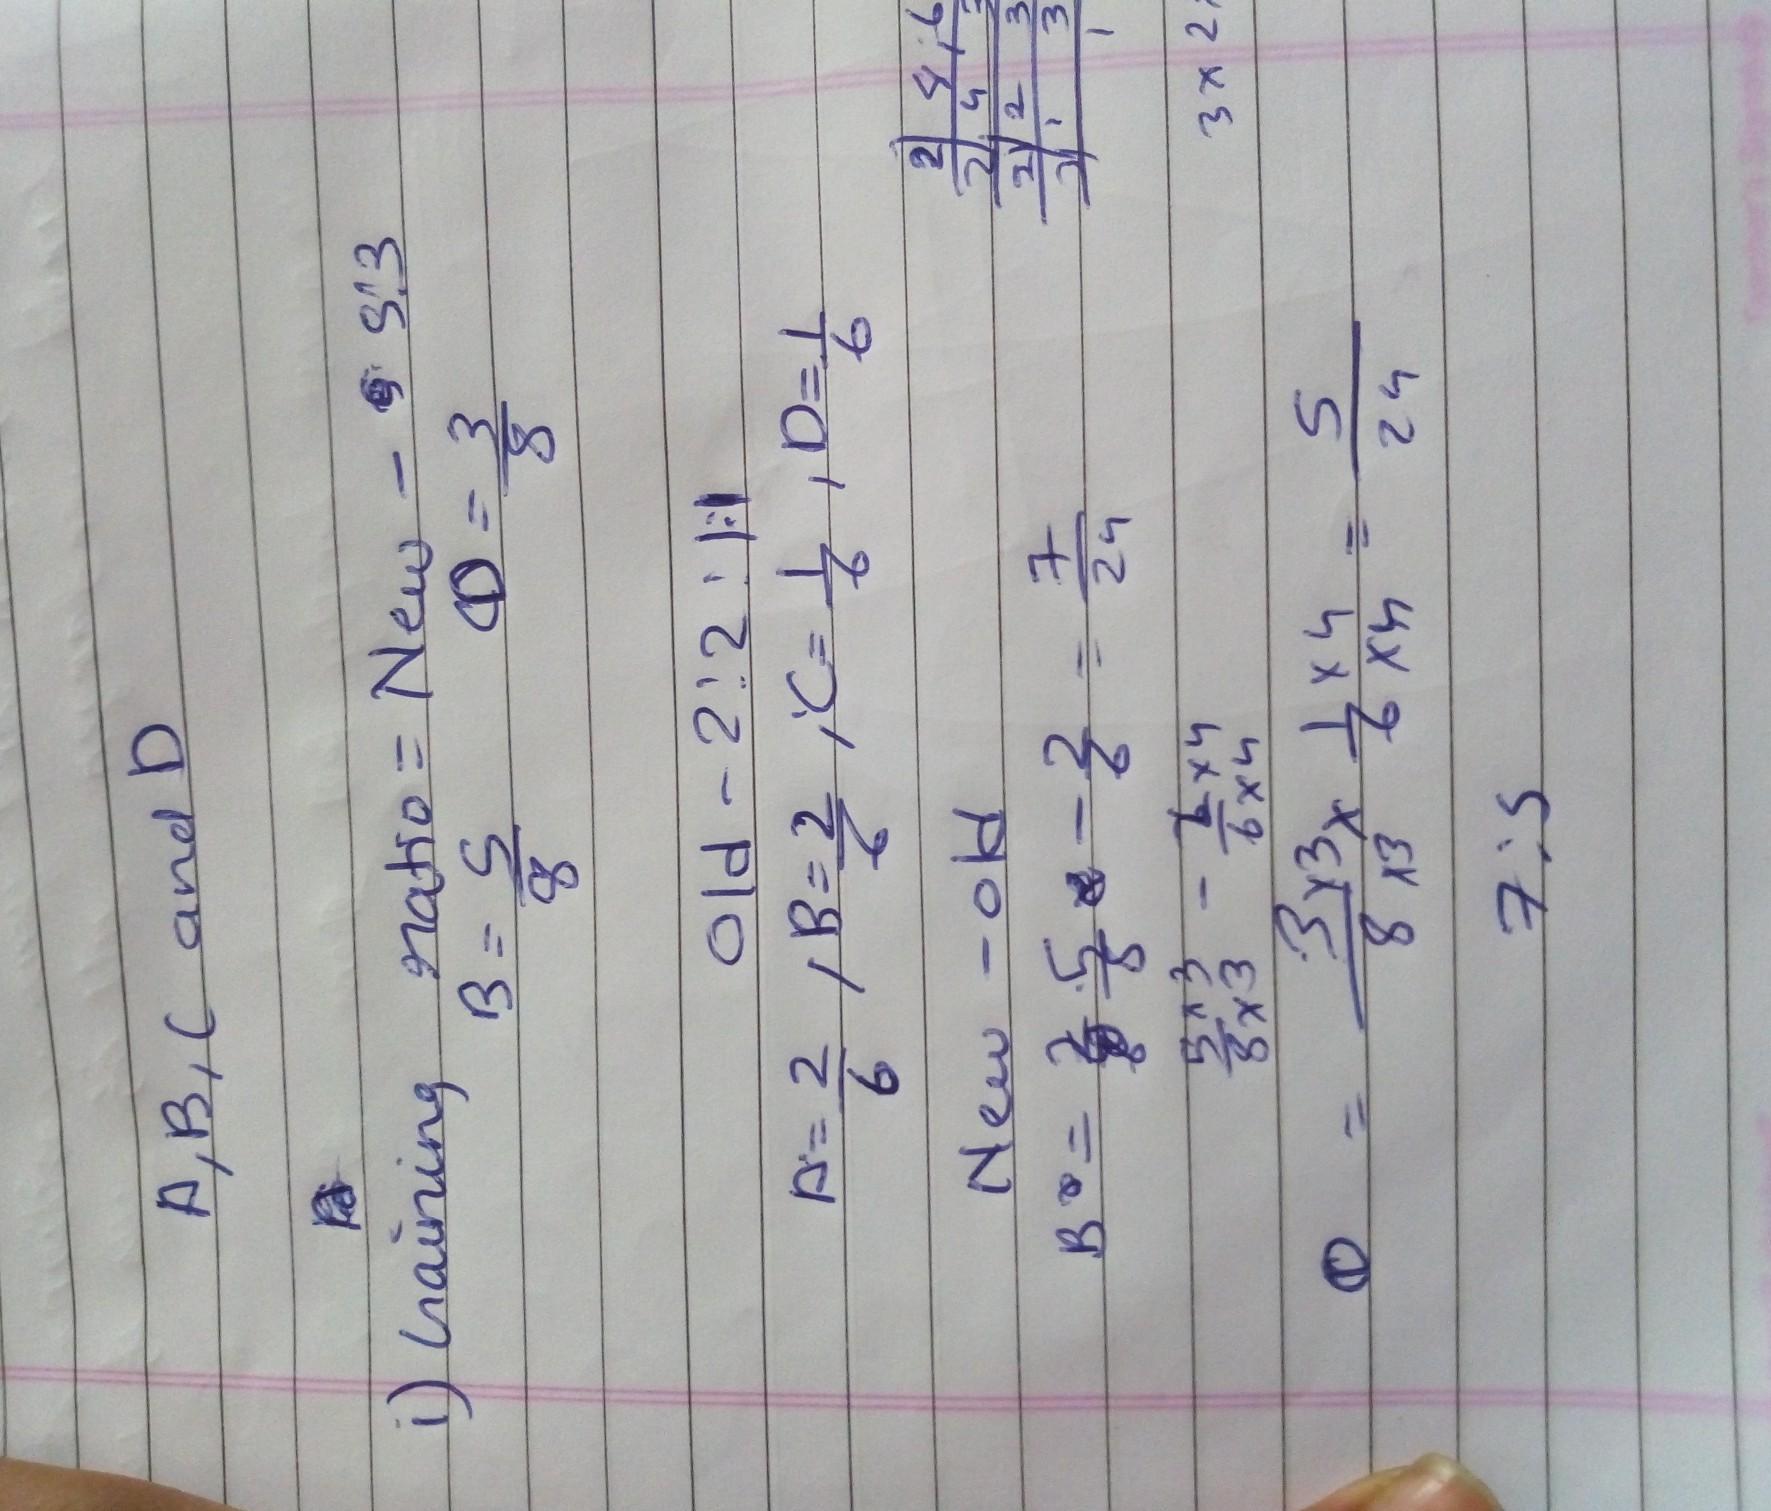 A, B, C and D
i) Gaining ratio = New - 5:3
B = 5/8 D = 3/8
Old - 2:2:1:1
A = 2/6, B = 2/6, C = 1/6, D = 1/6
New - old
B = 5/8 - 2/6 = 7/24
5x3/8x3 - x4/6x4
D = 3x3/8x3 x 1x4/6x4 = 5/24
7:5
2 8,6
2 4 3
2 2 3
1 3
1
3x2